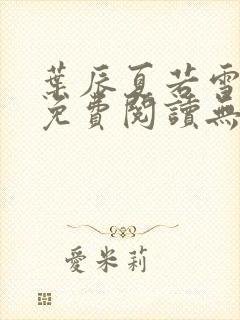 葉辰夏若雪
免費閱讀無
愛米莉